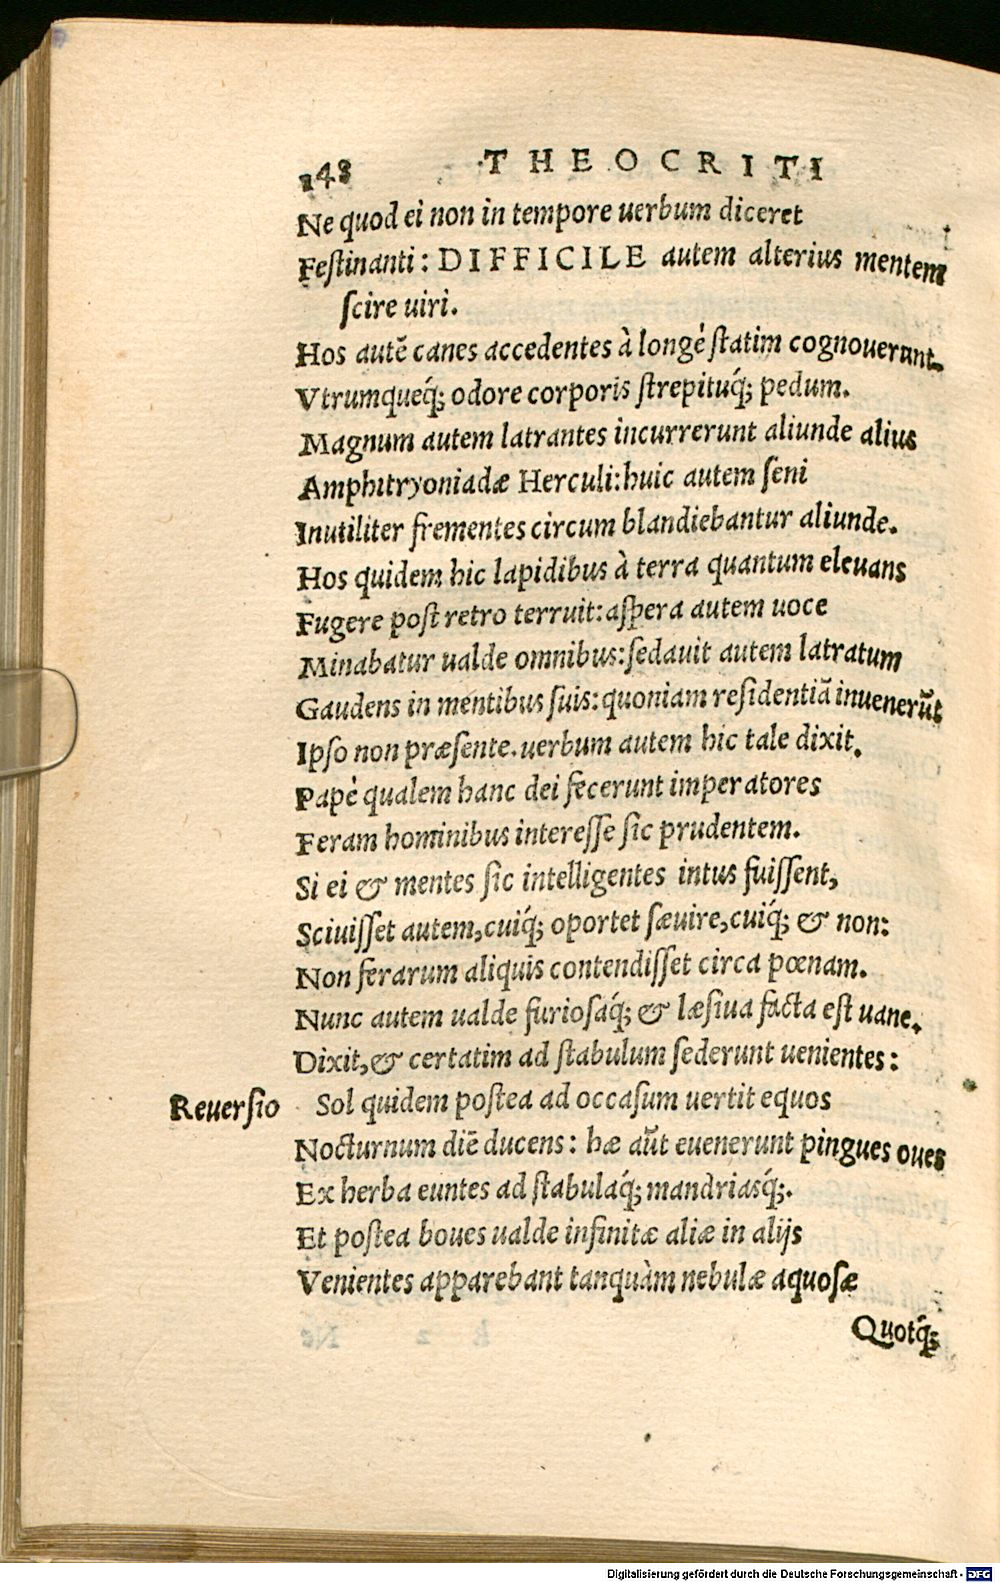 148 THEOCRITI
Ne quod ei non in tempore uerbum diceret
Festinanti: DIFFICILE autem alterius mentem
scire uiri.
Hos autē canes accedentes à longé statim cognouerunt
Vtrumqueq́; odore corporis strepituq́; pedum.
Magnum autem latrantes incurrerunt aliunde alius
Amphitryoniadæ Herculi: huic autem seni
Inutiliter frementes circum blandiebantur aliunde.
Hos quidem hic lapidibus à terra quantum eleuans
Fugere post retro terruit: aspera autem uoce
Minabatur ualde omnibus: sedauit autem latratum
Gaudens in mentibus suis: quoniam residentiā inuenerūt
Ipso non præsente. uerbum autem hic tale dixit.
Papè qualem hanc dei fecerunt imperatores
Feram hominibus interesse sic prudentem.
Si ei & mentes sic intelligentes intus fuissent,
Sciuisset autem, cuiq́; oportet sæuire, cuiq́; & non:
Non ferarum aliquis contendisset circa pœnam.
Nunc autem ualde furiosaq́; & læsiua facta est uane.
Dixit, & certatim ad stabulum sederunt uenientes:
Reuersio Sol quidem postea ad occasum uertit equos
Nocturnum diē ducens: hæ aūt euenerunt pingues oues
Ex herba euntes ad stabulaq́; mandriasq́;.
Et postea boues ualde infinitæ aliæ in alijs
Venientes apparebant tanquàm nebulæ aquosæ
Quotq́;
Digitalisierung gefördert durch die Deutsche Forschungsgemeinschaft - DFG